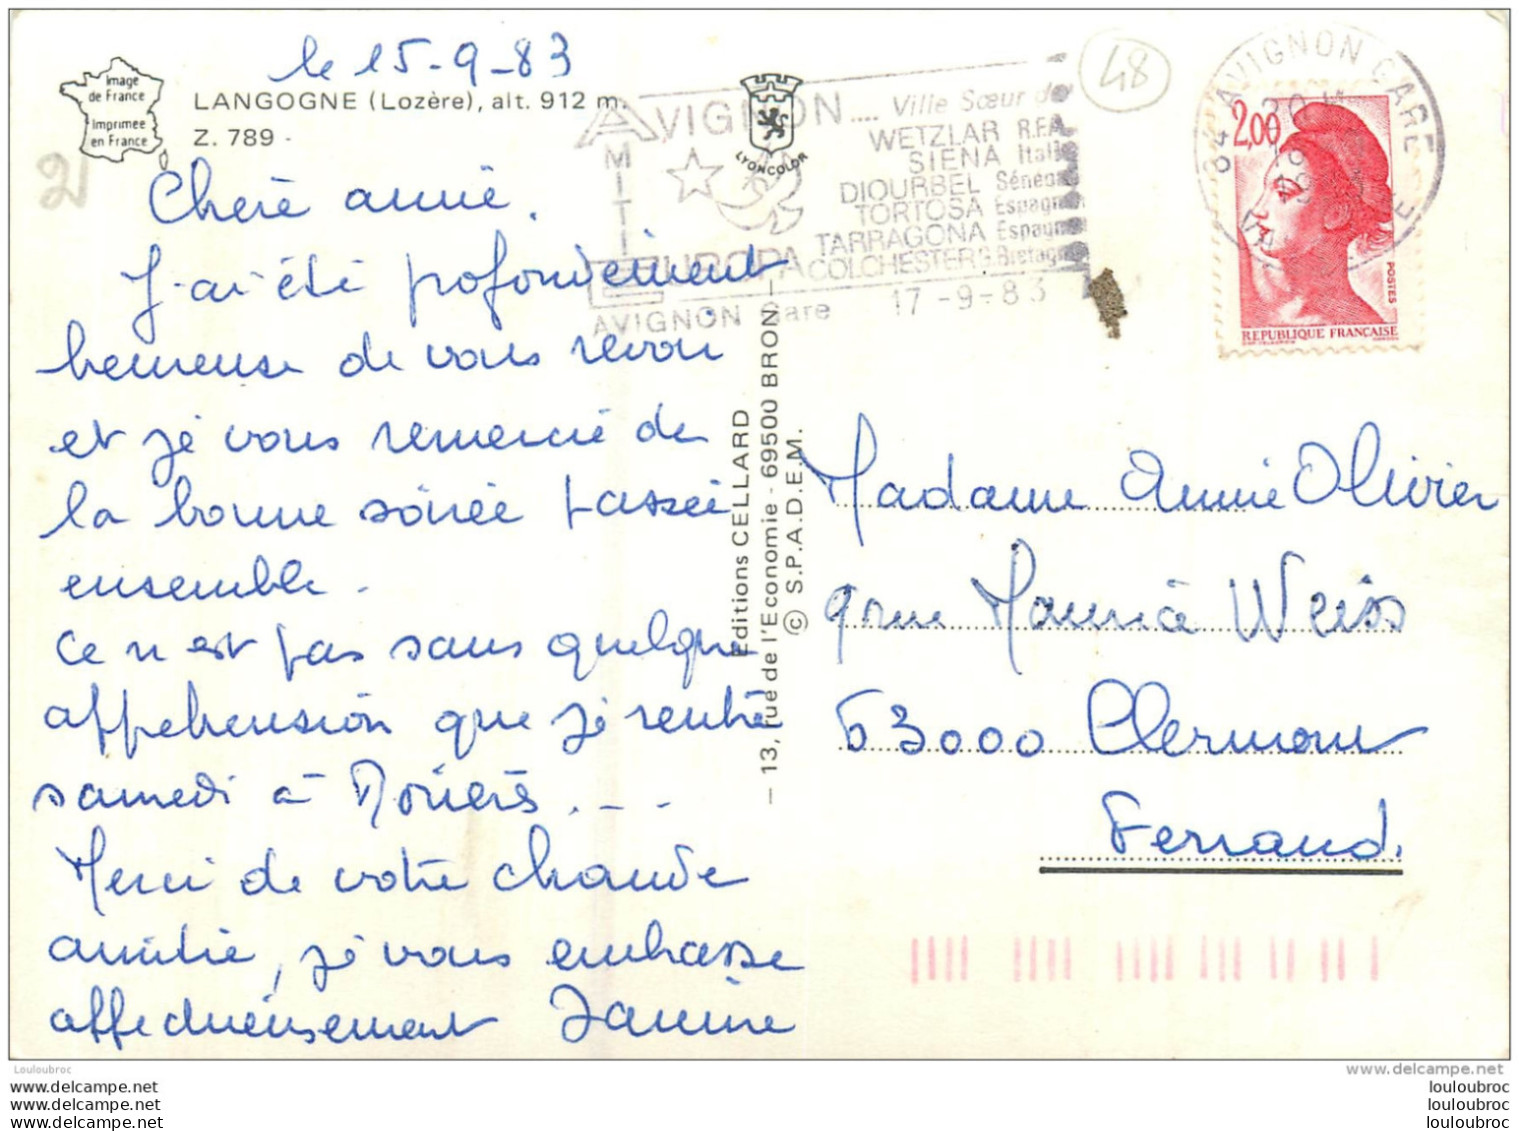 le 15-9-83
Image
de France
Imprimée
en France
LANGOGNE (Lozère), alt. 912 m.
Z. 789 -
LYONCOLOR
48
AVIGNON .... Ville Sœur de
WETZLAR R.F.A
SIENA Italie
DIOURBEL Sénég
TORTOSA Espagn
TARRAGONA Espagn
COLCHESTER G. Bretagn
AMITIE
EUROPA
AVIGNON Gare 17-9-83
84 AVIGNON GARE
2,00
POSTES
REPUBLIQUE FRANÇAISE
Chère annie,
J'ai été profondément
heureuse de vous revoir
et je vous remercie de
la bonne soirée passée
ensemble.
Ce n'est pas sans quelque
appréhension que je rentre
samedi à Morières...
Merci de votre chaude
amitié, je vous embrasse
affectueusement Janine
Editions CELLARD
- 13, rue de l'Economie - 69500 BRON -
© S.P.A.D.E.M.
Madame Annie Olivier
9 rue Maurice Weiss
63000 Clermont
Ferrand.
Louloubroc
www.delcampe.net
www.delcampe.net
www.delcampe.net
www.delcampe.net
louloubroc
louloubroc
louloubroc